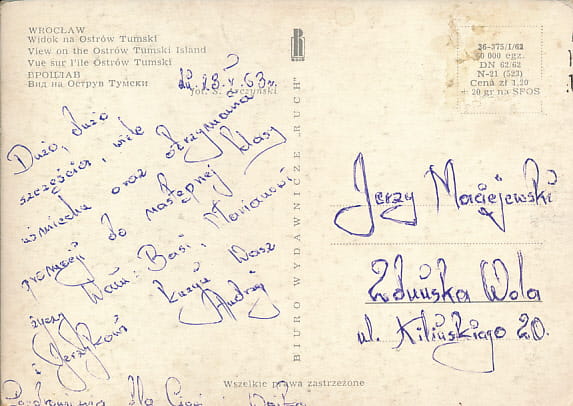 WROCŁAW
Widok na Ostrów Tumski
View on the Ostrów Tumski Island
Vue sur l'île Ostrów Tumski
ВРОЦЛАВ
Вид на Остров Тумски
fot. S. Arczyński
dn. 23.V.63 r.
Dużo, dużo
szczęścia, wiele
uśmiechu oraz otrzymania
promocji do następnej klasy
życzy Wam: Basi, Marianowi
i Jerzykowi kuzyn Wasz
Andrzej
Pozdrowienia dla Cioci i Wujka
BIURO WYDAWNICZE "RUCH"
36-375/I/62
DN 62/62
N-21 (523)
Cena zł 1,20
+ 20 gr na SFOS
Jerzy Maciejewski
Zduńska Wola
ul. Kilińskiego 20.
Wszelkie prawa zastrzeżone